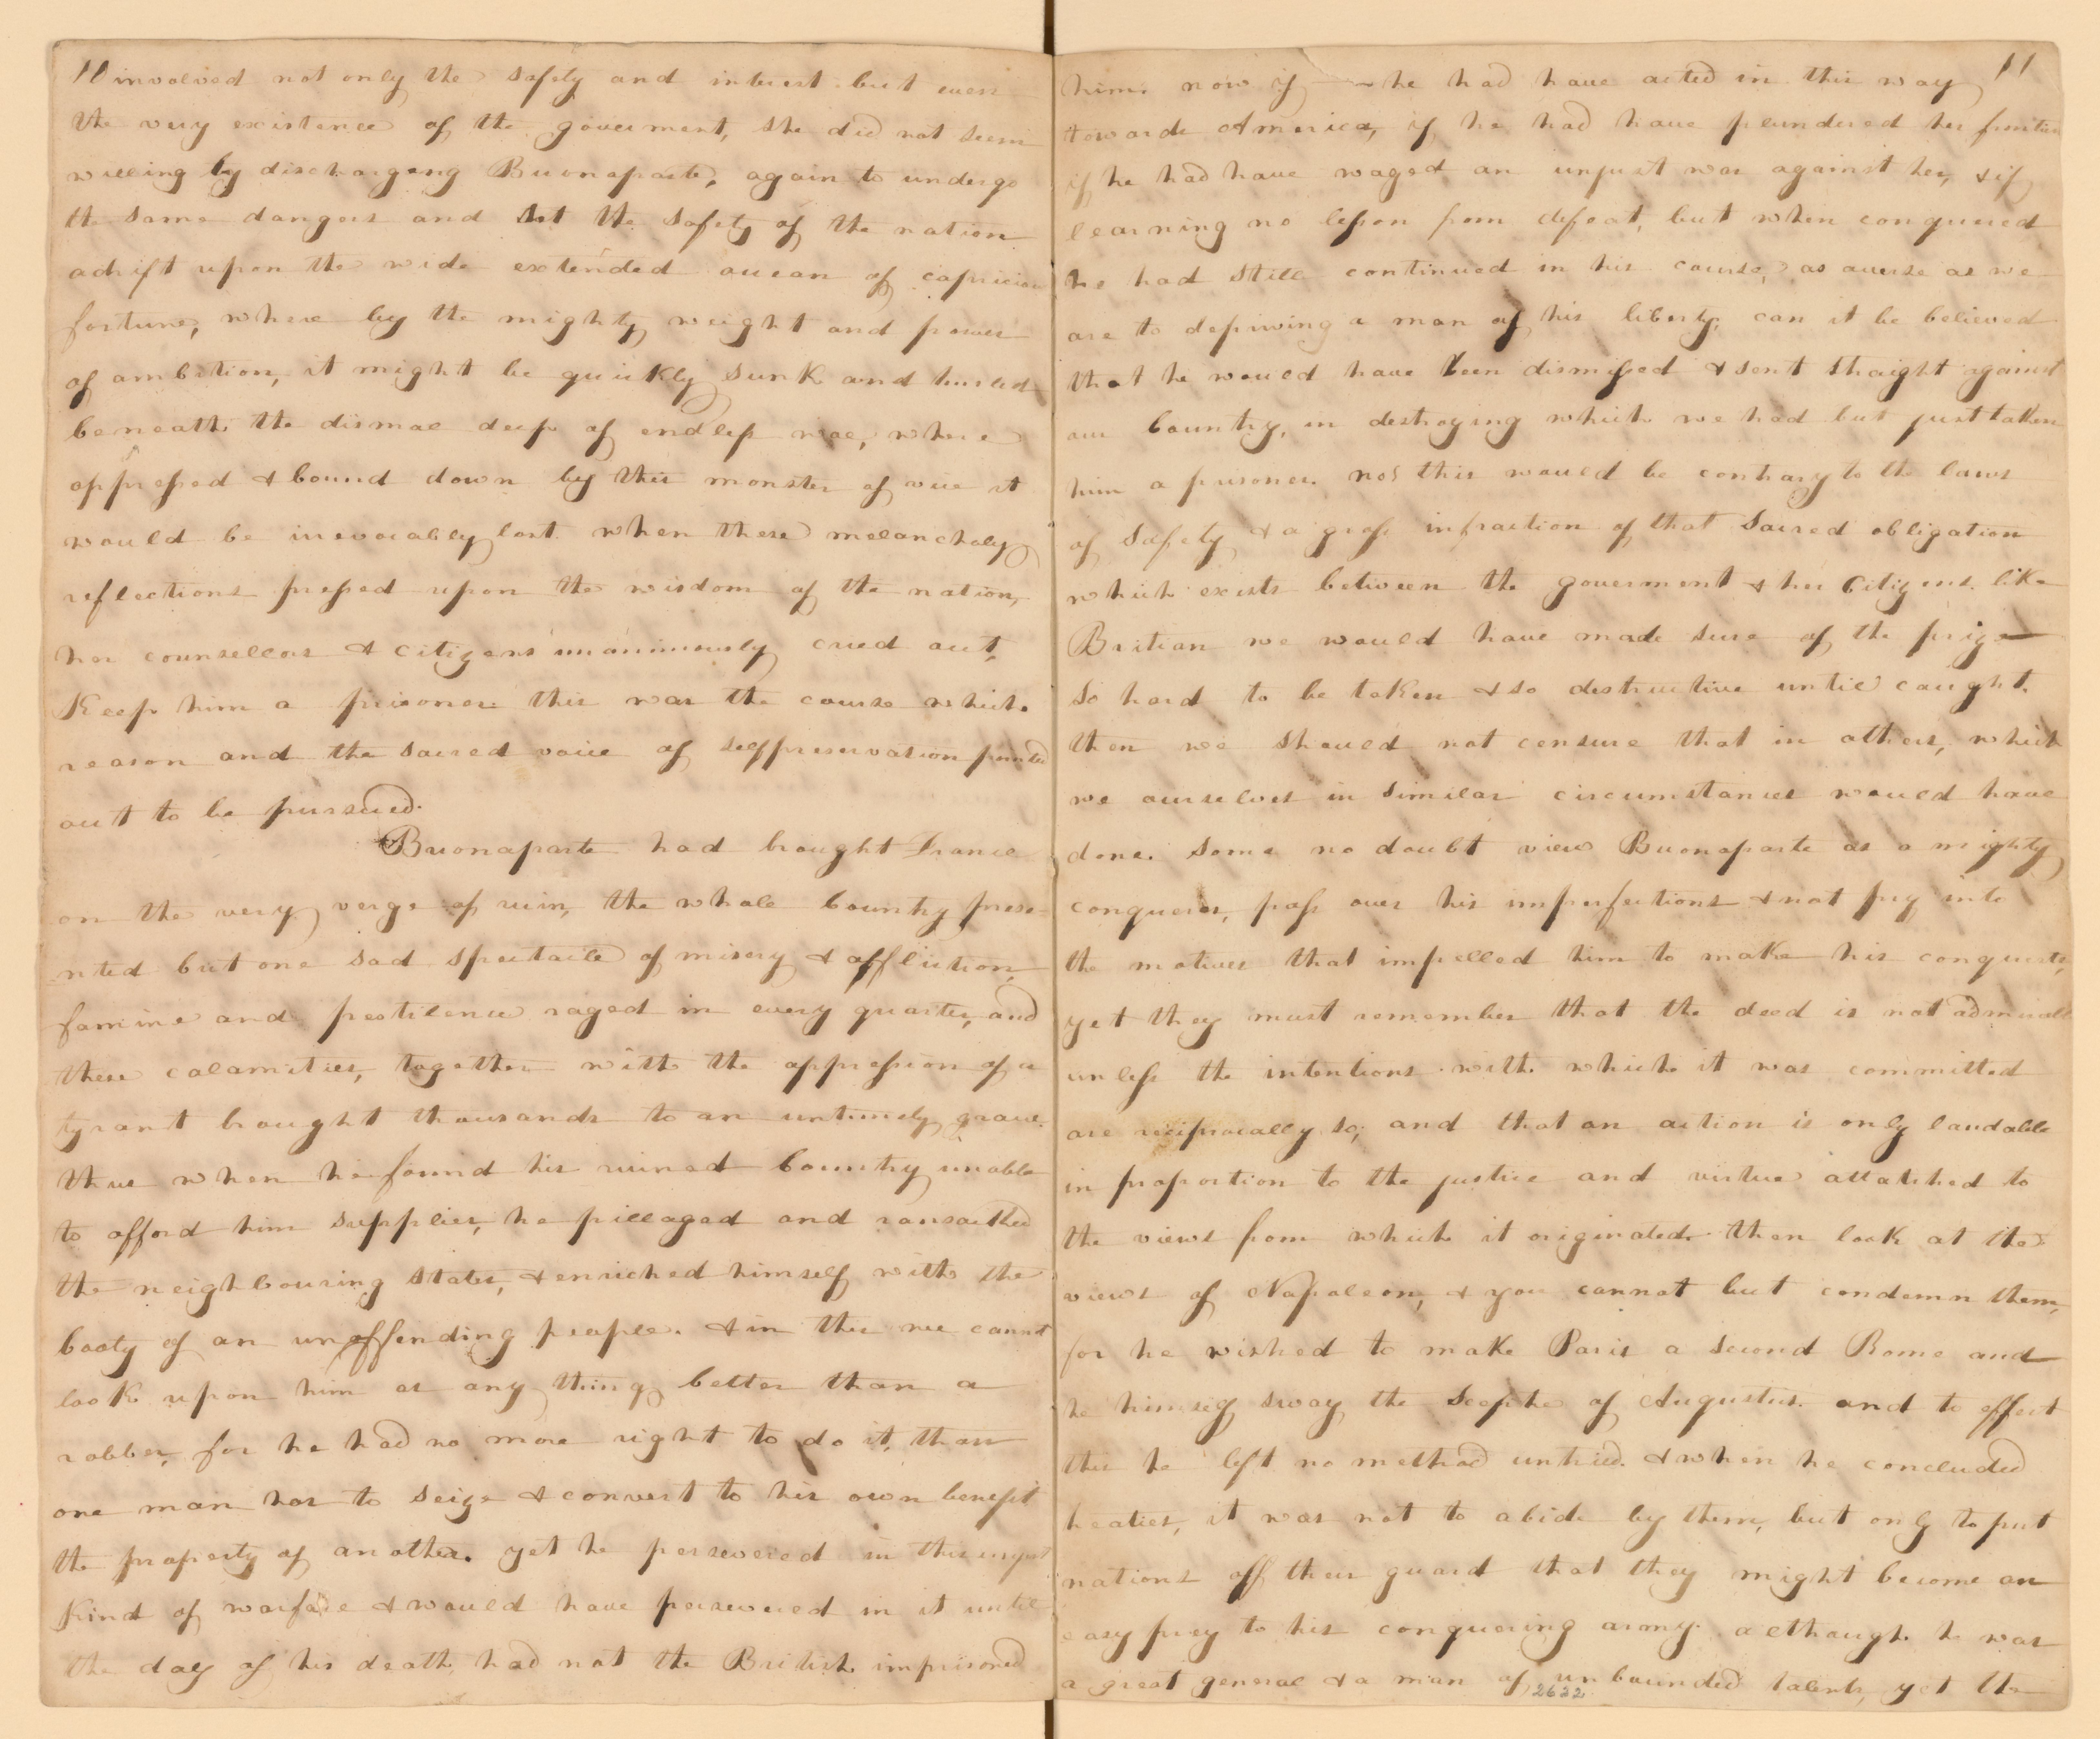 10 involved not only the safety and interest but even
the very existence of the goverment, she did not seem
willing by dischargeng Buonaparte, again to undergo
the same dangers and set the safety of the nation
adrift upon the wide extended ocean of capricious
fortune, where by the mighty weight and power
of ambition, it might be quickly sunk and hurled
beneath the dismal deep of endless woe, where
oppressed & bound down by this monster of vice it
would be irrevocably lost when these melancholy
reflections pressed upon the wisdom of the nation,
her counsellors & citizens unanimously cried out,
Keep him a prisoner this was the course which
reason and the sacred voice of selfpreservation pointed
out to be pursued.
Buonaparte had brought France
on the very verge of ruin, the whole country prese-
nted but one sad spectacle of misery & affliction,
famine and pestilence raged in every quarter, and
these calamities, together with the oppression of a
tyrant brought thousands to an untimely grave.
thus when he found his ruined country unable
to afford him supplies, he pillaged and ransacked
the neighbouring states, & enriched himself with the
booty of an unoffending people. & in this we cannot
look upon him as any thing better than a
robber, for he had no more right to do it, than
one man has to seize & convert to his own benefit
the property of another. yet he persevered in this unjust
kind of warfare & would have persevered in it until
the day of his death had not the British imprisoned
11
him. now if he had have acted in this way
towards America, if he had have plundered her frontier
if he had have waged an unjust war against her, & if
learning no lesson from defeat, but when conquered
he had still continued in his course, as averse as we
are to depriving a man of his liberty, can it be believed
that he would have been dismissed & sent straight against
our country, in destroying which we had but just taken
him a prisoner. no! this would be contrary to the laws
of safety & a gross infraction of that sacred obligation
which exists between the goverment & her citizens. like
Britian we would have made sure of the prize
so hard to be taken & so destructive until caught.
then we should not censure that in others, which
we ourselves in similar circumstances would have
done. Some no doubt view Buonaparte as a mighty
conqueror, pass over his imperfections & not pry into
the motives that impelled him to make his conquests,
yet they must remember that the deed is not admirable
unless the intentions with which it was committed
are reciprocally so; and that an action is only laudable
in proportion to the justice and virtue attatched to
the views from which it originated. then look at the
views of Napoleon, & you cannot but condemn them,
for he wished to make Paris a second Rome and
he himself sway the Scepter of Augustus. and to effect
this he left no method untried. & when he concluded
treaties, it was not to abide by them, but only to put
nations off their guard that they might become an
easy prey to his conquering army. although he was
a great general & a man of unbounded talents, yet the
2632